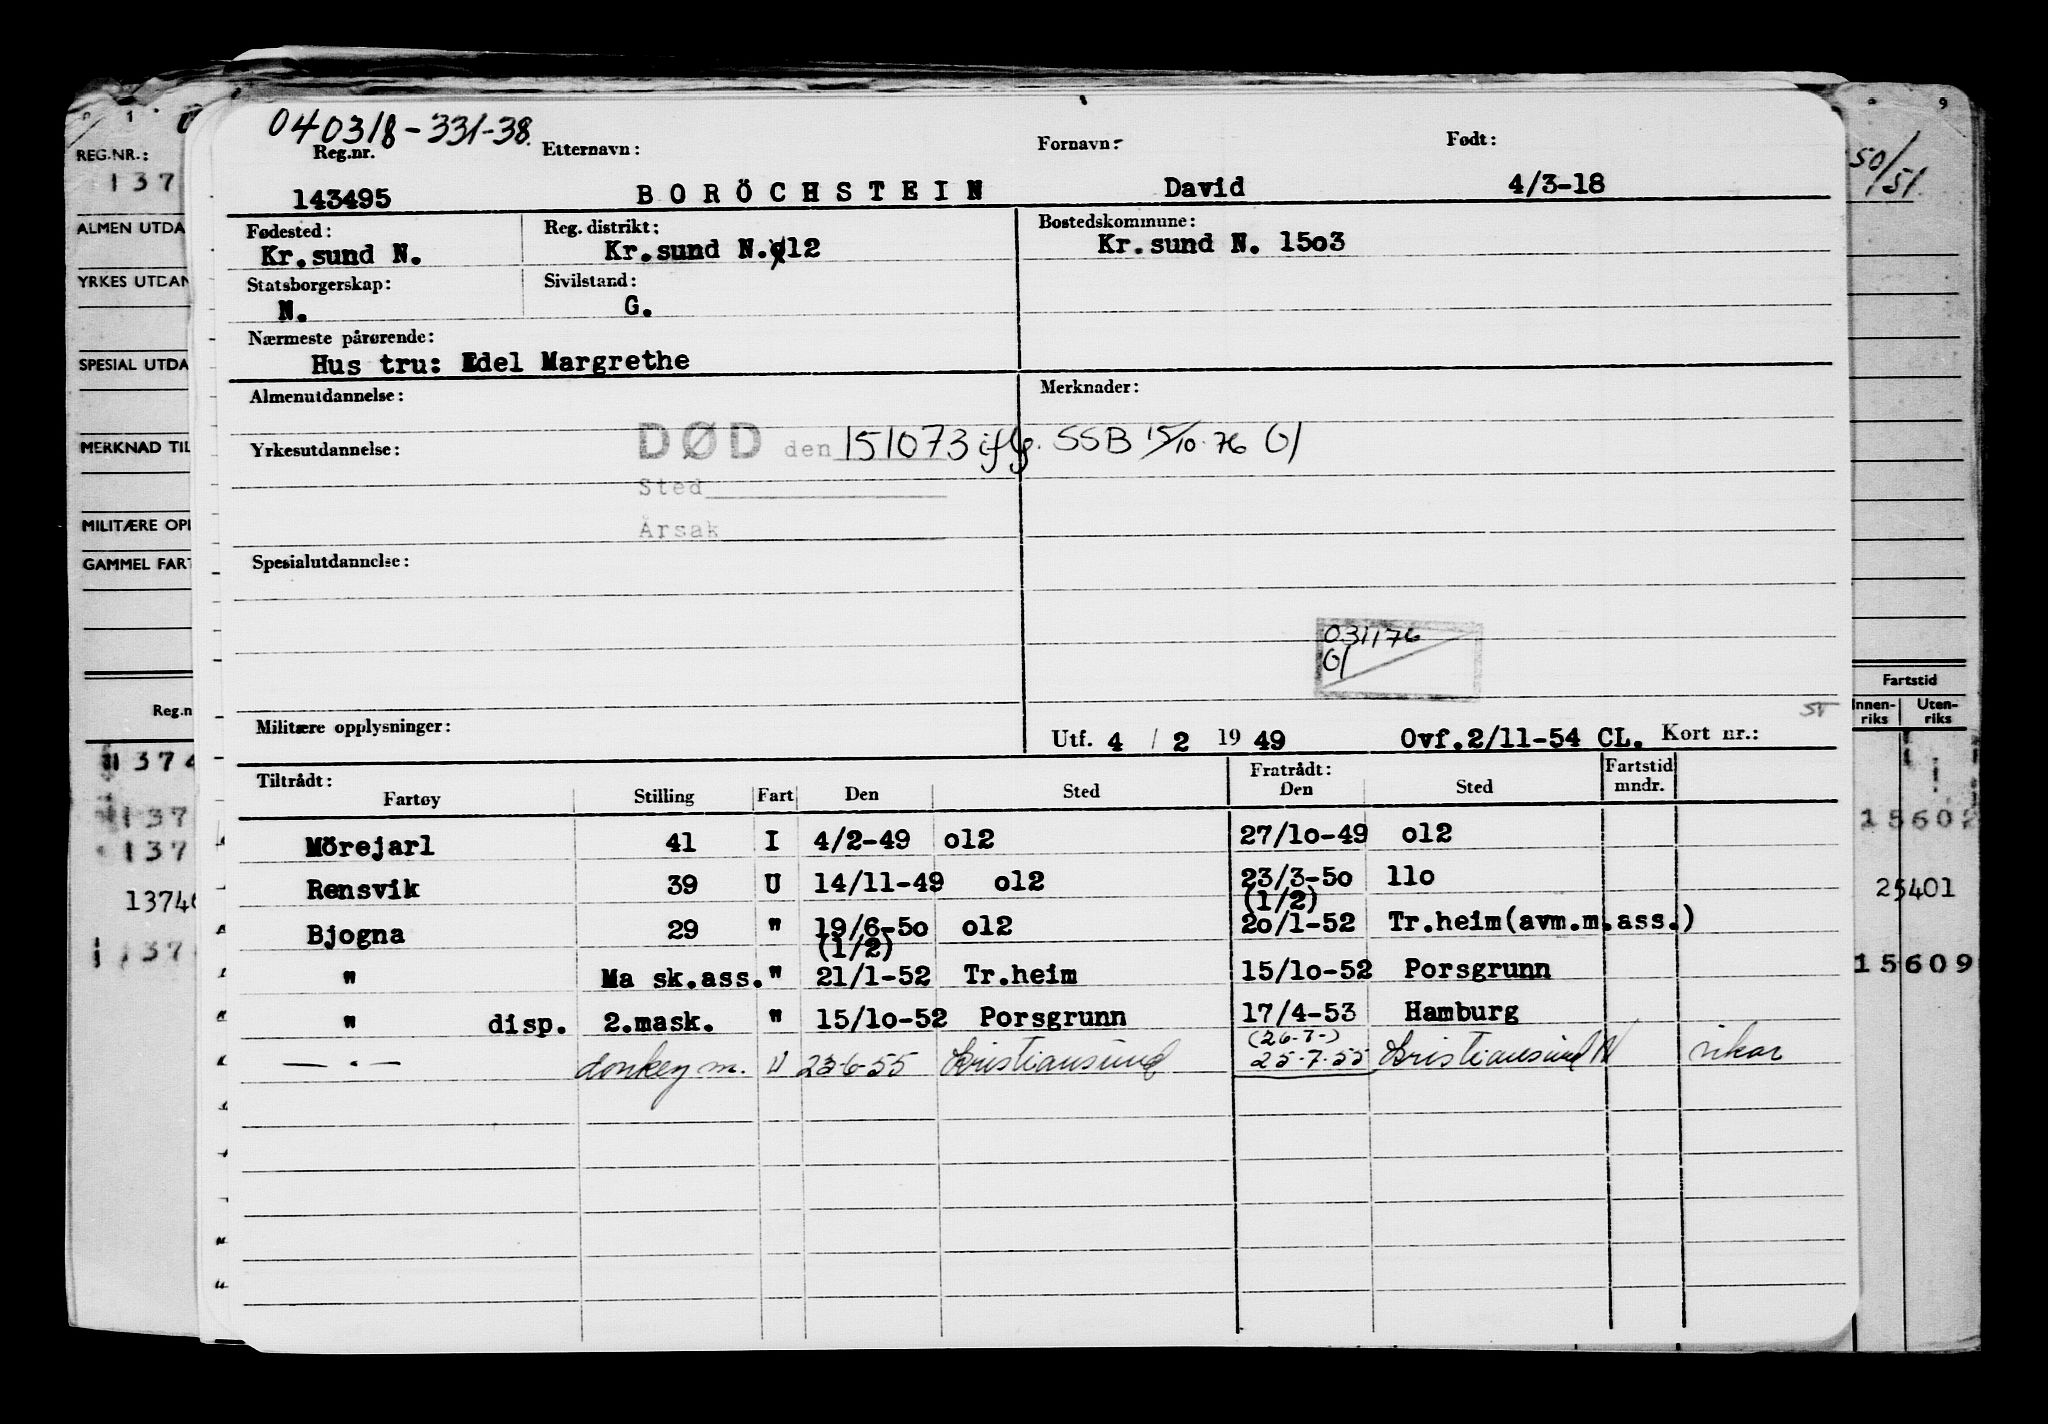 040318-331-38.
Reg.nr. Etternavn: Fornavn: Født:
143495 BORÖCHSTEIN David 4/3-18
Fødested: Reg. distrikt: Bostedskommune:
Kr.sund N. Kr.sund N.o12 Kr.sund N. 15o3
Statsborgerskap: Sivilstand:
N. G.
Nærmeste pårørende:
Hus tru: Edel Margrethe
Almenutdannelse: Merknader:
Yrkesutdannelse: DØD den 151073 iflg. SSB 15/10-76 Gl
Sted
Årsak
Spesialutdannelse:
031176
Gl
Militære opplysninger: Utf. 4 / 2 19 49 Ovf.2/11-54 CL. Kort nr.: ST
Tiltrådt: Fratrådt: Fartstid
Fartøy Stilling Fart Den Sted Den Sted mndr.
Mörejarl 41 I 4/2-49 o12 27/1o-49 o12
Rensvik 39 U 14/11-49 o12 23/3-5o 11o
(1/2)
Bjogna 29 " 19/6-5o o12 2o/1-52 Tr.heim(avm.m.ass.)
(1/2)
" Ma sk.ass. " 21/1-52 Tr.heim 15/1o-52 Porsgrunn
" disp. 2.mask. " 15/1o-52 Porsgrunn 17/4-53 Hamburg
(26-7-)
— " — donkey m. U 23-6-55 Kristiansund 25-7-55 Kristiansund N vikar
REG.NR.:
137
ALMEN UTDA
YRKES UTDAN
SPESIAL UTDA
MERKNAD TIL
MILITÆRE OPP
GAMMEL FART
Reg.n
1374
137
137
13746
137
9
50/51
Fartstid
Innen-riks Uten-riks
15602
25401
15609